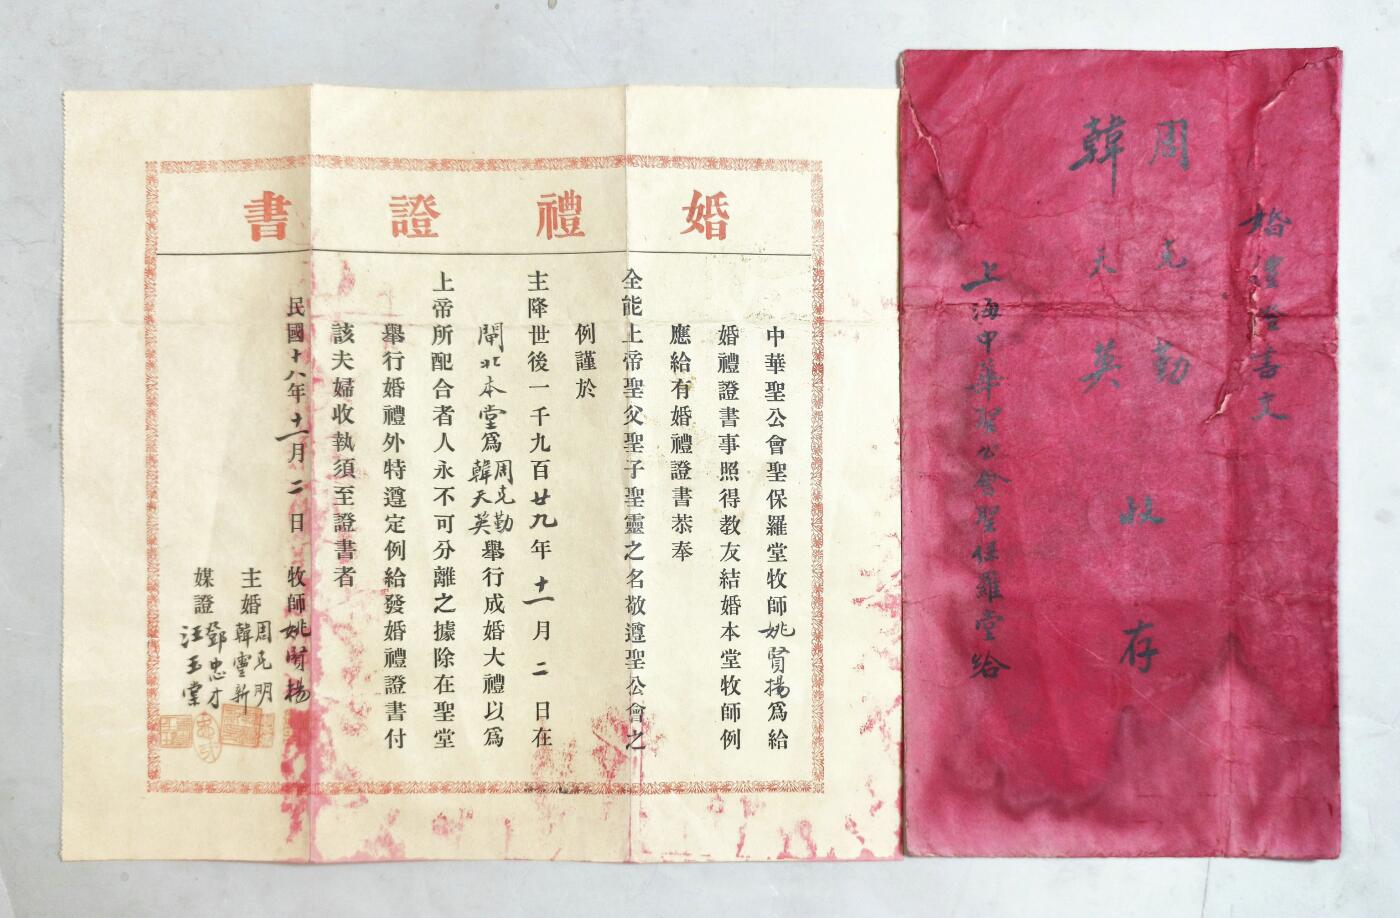 婚禮證書
中華聖公會聖保羅堂牧師姚賢揚爲給
婚禮證書事照得教友結婚本堂牧師例
應給有婚禮證書恭奉
全能上帝聖父聖子聖靈之名敬遵聖公會之
例謹於
主降世後一千九百廿九年十一月二日在
閘北本堂爲周克勤韓天英舉行成婚大禮以爲
上帝所配合者人永不可分離之據除在聖堂
舉行婚禮外特遵定例給發婚禮證書付
該夫婦收執須至證書者
民國十八年十一月二日 牧師姚賢揚
主婚 周克明 韓靈新
媒證 鄧忠才 汪玉棠
婚禮證書文
周克勤
韓天英
收存
上海中華聖公會聖保羅堂給